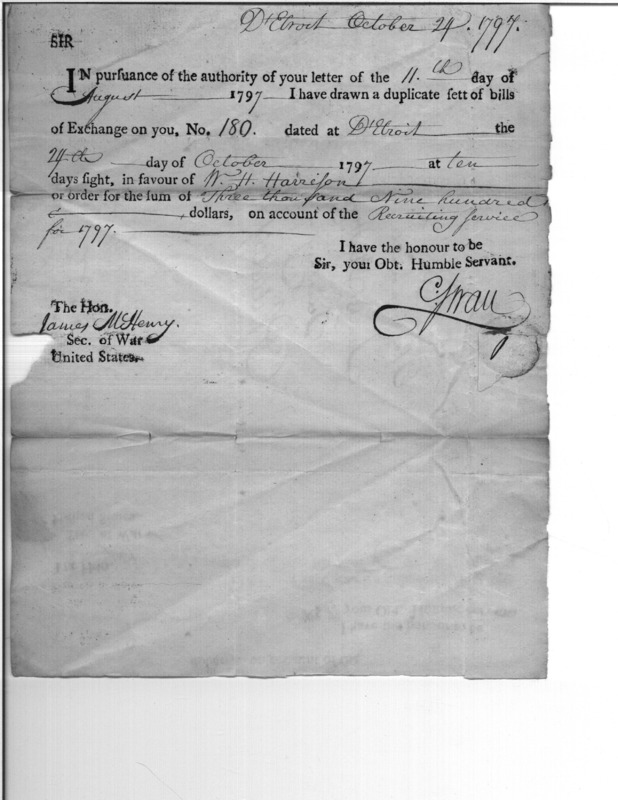 D'Etroit October 24. 1797.
SIR
IN purſuance of the authority of your letter of the 11.th day of
August 1797 I have drawn a duplicate ſett of bills
of Exchange on you, No. 180. dated at D'Etroit the
24th day of October 1797 at ten
days ſight, in favour of W. H. Harriſon
or order for the ſum of Three thouſand Nine hundred
dollars, on account of the Recruiting Service
for 1797.
I have the honour to be
Sir, your Obt. Humble Servant.
C Swan
The Hon.
James McHenry.
Sec. of War
United States.